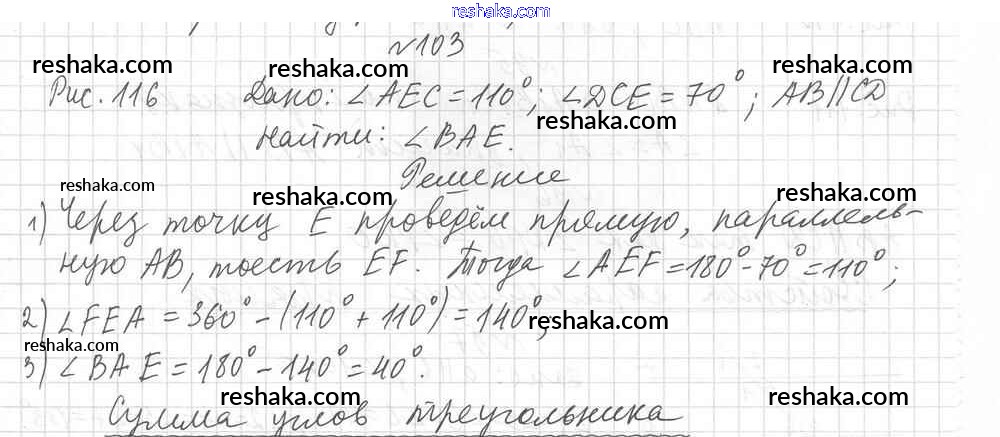 reshaka.com
№103
reshaka.com reshaka.com reshaka.com
Рис. 116 Дано: ∠AEC = 110°; ∠DCE = 70°; AB||CD
reshaka.com
Найти: ∠BAE.
Решение
reshaka.com reshaka.com reshaka.com
1) Через точку E проведём прямую, параллель-
ную AB, тоесть EF. Тогда ∠AEF = 180° - 70° = 110°;
2) ∠FEA = 360° - (110° + 110°) = 140°;
reshaka.com
reshaka.com
3) ∠BAE = 180° - 140° = 40°.
reshaka.com reshaka.com reshaka.com
Сумма углов треугольника